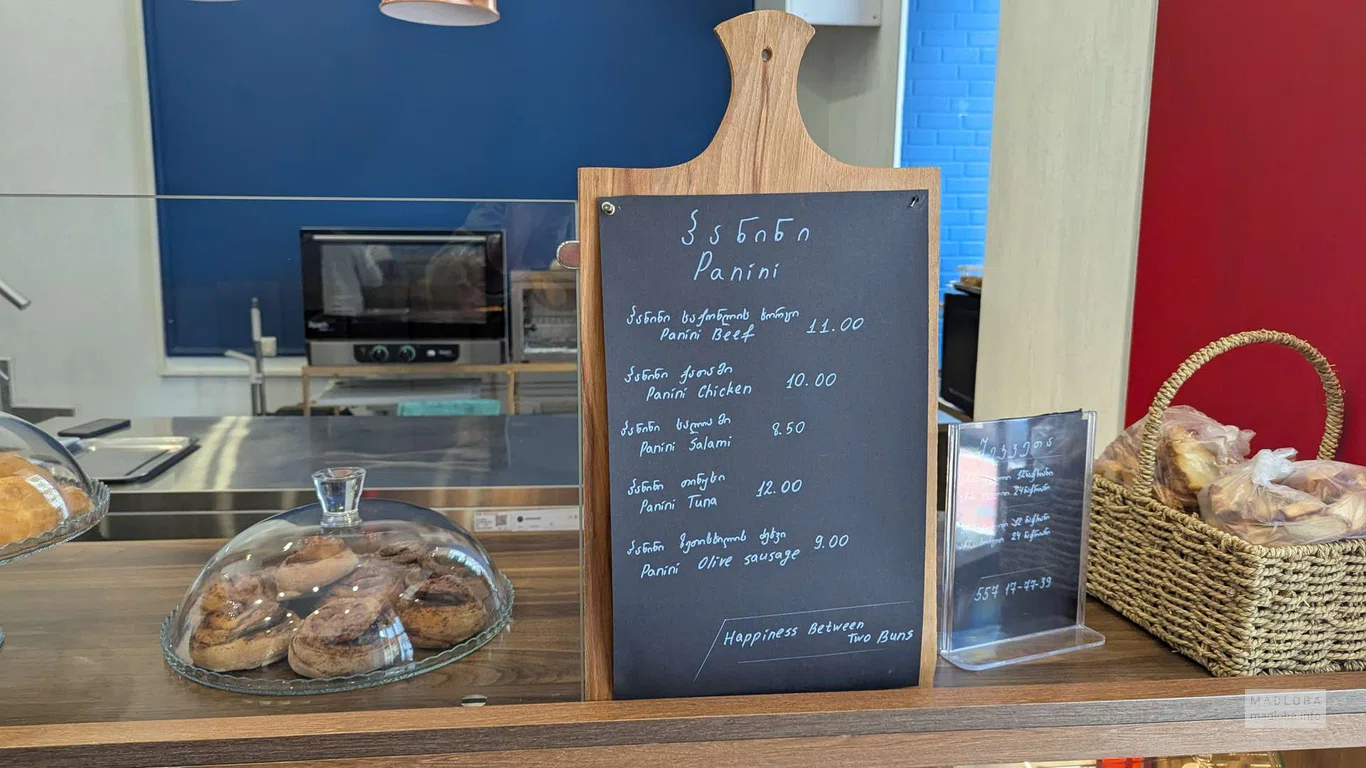 პანინი
Panini
პანინი საქონლის ხორცი
Panini Beef 11.00
პანინი ქათამი
Panini Chicken 10.00
პანინი სალიამი
Panini Salami 8.50
პანინი თინუსი
Panini Tuna 12.00
პანინი ზეთისხილის ძეხვი
Panini Olive sausage 9.00
Happiness Between
Two Buns
შეკვეთა
557 17-77-39
MADLOBA
madloba.info